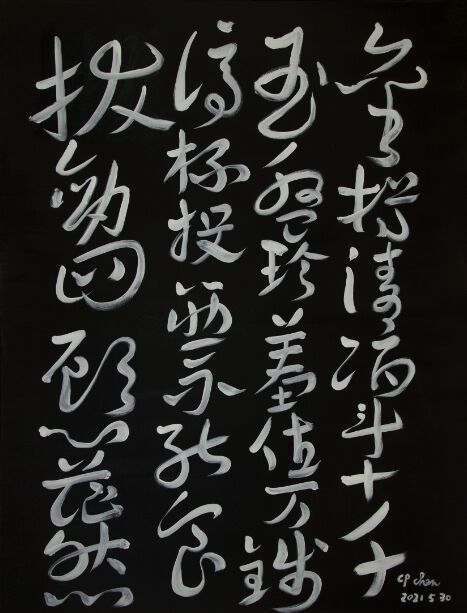 金樽清酒斗十千
玉盤珍羞值万錢
停杯投箸不能食
拔劍四顧心茫然
CP Chen
2021 5 30